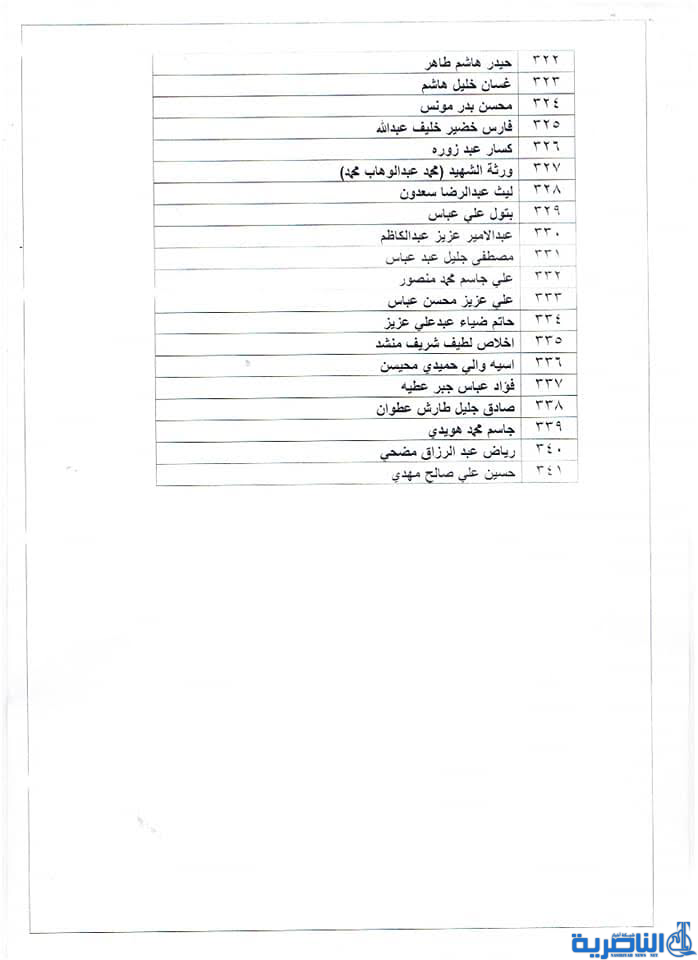 ٣٢٢ حيدر هاشم طاهر
٣٢٣ غسان خليل هاشم
٣٢٤ محسن بدر مونس
٣٢٥ فارس خضير خليف عبدالله
٣٢٦ كسار عبد زوره
٣٢٧ ورثة الشهيد (محمد عبدالوهاب محمد)
٣٢٨ ليث عبدالرضا سعدون
٣٢٩ بتول علي عباس
٣٣٠ عبدالامير عزيز عبدالكاظم
٣٣١ مصطفى جليل عبد عباس
٣٣٢ علي جاسم محمد منصور
٣٣٣ علي عزيز محسن عباس
٣٣٤ حاتم ضياء عبدعلي عزيز
٣٣٥ اخلاص لطيف شريف منشد
٣٣٦ اسيه والي حميدي محيسن
٣٣٧ فؤاد عباس جبر عطيه
٣٣٨ صادق جليل طارش عطوان
٣٣٩ جاسم محمد هويدي
٣٤٠ رياض عبد الرزاق مضحي
٣٤١ حسين علي صالح مهدي
شبكة أخبار
الناصرية
NASIRIYAH NEWS NET